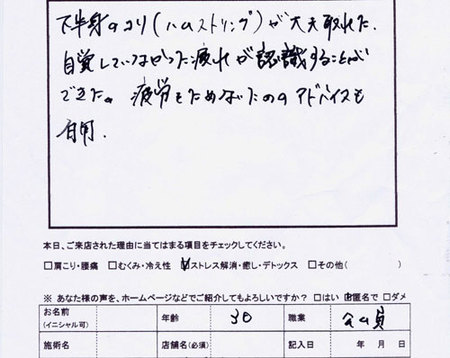 下半身のコリ(ハムストリング)が大夫取れた。
自覚していなかった疲れが認識することが
できた。疲労をためないためのアドバイスも
有用。
本日、ご来店された理由に当てはまる項目をチェックしてください。
□肩こり・腰痛 □むくみ・冷え性 ☑ストレス解消・癒し・デトックス □その他( )
※ あなた様の声を、ホームページなどでご紹介してもよろしいですか? □はい ☑匿名で □ダメ
お名前 (イニシャル可) 年齢 30 職業 会社員
施術名 店舗名(必須) 記入日 年 月 日